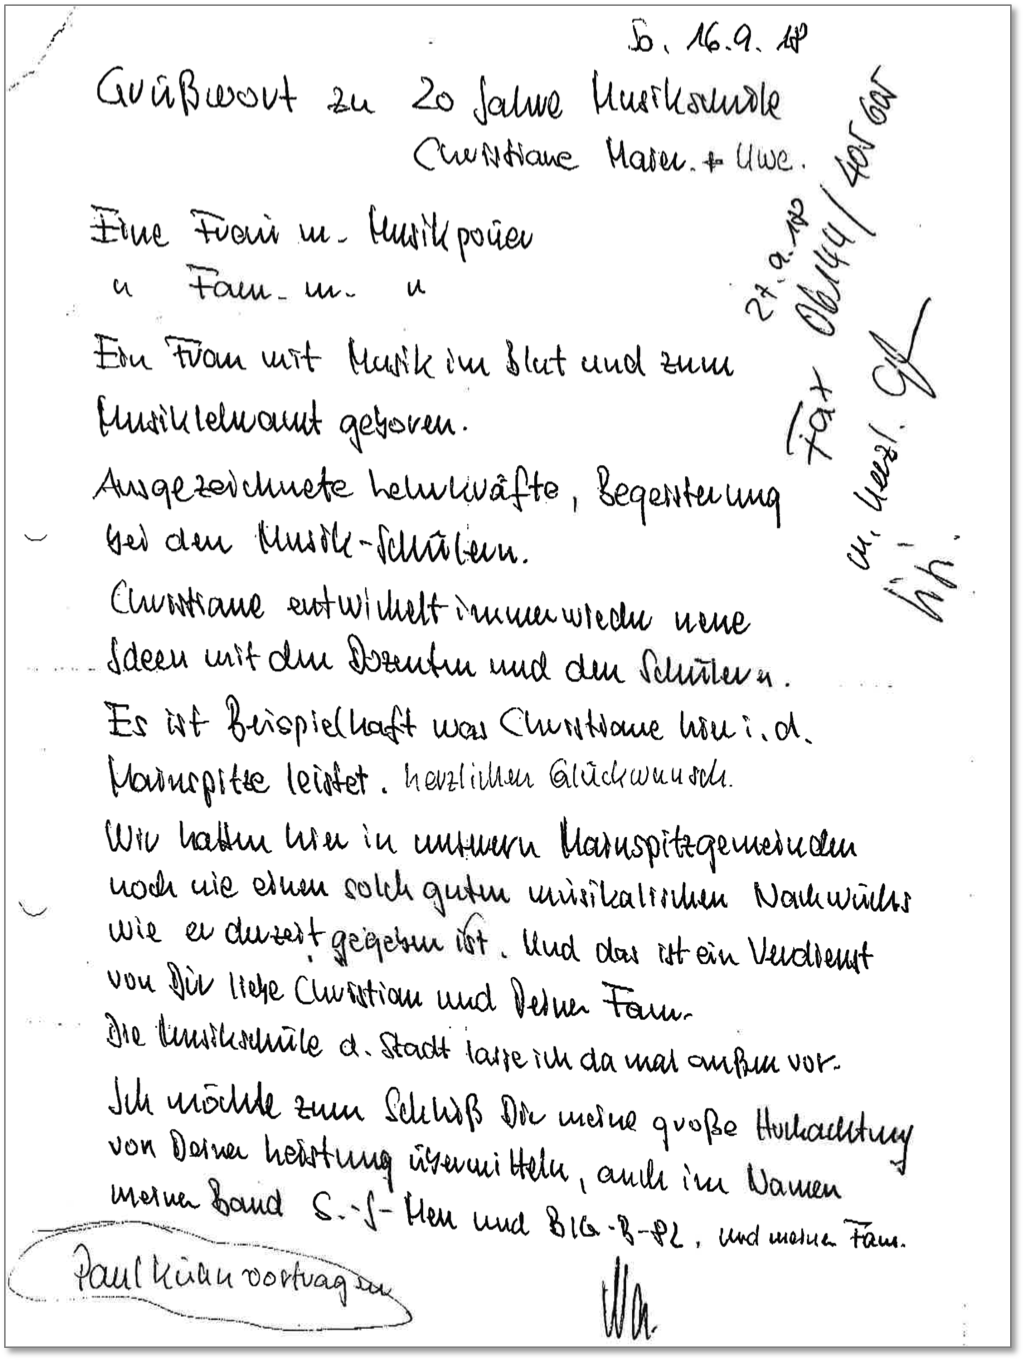 So. 16.9.18
Grüßwort zu 20 Jahre Musikschule
Christiane Maier. + Uwe.
Eine Frau m. Musikpower
" Fam. m. "
Ein Frau mit Musik im Blut und zum
Musiklehramt geboren.
Ausgezeichnete Lehrkräfte, Begeisterung
bei den Musik-Schülern.
Christiane entwickelt immer wieder neue
Ideen mit den Dozenten und den Schülern.
Es ist Beispielhaft was Christiane hier i. d.
Mainspitze leistet. herzlichen Glückwunsch.
Wir hatten hier in unseren Mainspitzgemeinden
noch nie einen solch guten musikalischen Nachwuchs
wie er derzeit gegeben ist. Und das ist ein Verdienst
von Dir liebe Christian und Deiner Fam.
Die Musikschule d. Stadt lasse ich da mal außen vor.
Ich möchte zum Schluß Dir meine große Hochachtung
von Deiner Leistung übermitteln, auch im Namen
meiner Band S.-J-Men und BIG-B-PL, und meiner Fam.
Paul Kuhn vortragen
27.9.18
Fax 06144/405605
m. herzl.